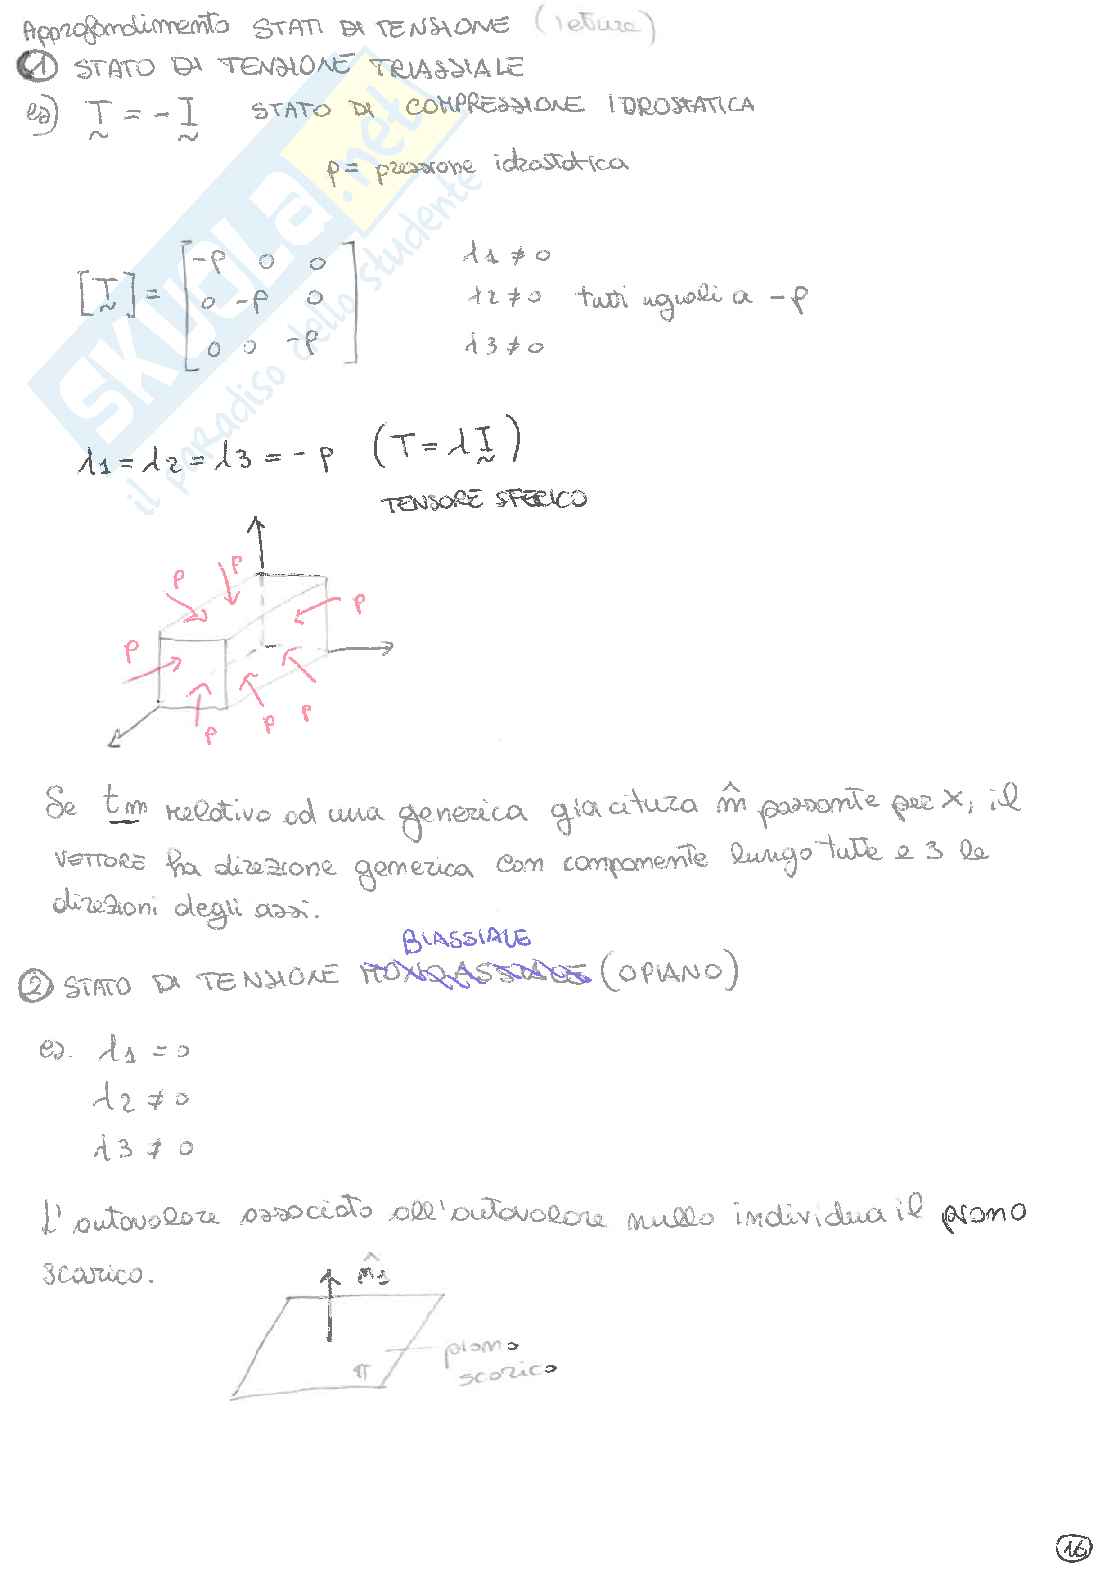 Approfondimento STATI DI TENSIONE (letture)
1 STATO DI TENSIONE TRIASSIALE
es) T = - I STATO DI COMPRESSIONE IDROSTATICA
p = pressione idrostatica
[T] = [-p 0 0
0 -p 0
0 0 -p]
λ1 ≠ 0
λ2 ≠ 0 tutti uguali a -p
λ3 ≠ 0
λ1 = λ2 = λ3 = - p (T = λ I)
TENSORE SFERICO
p
p
p
p
p
p
p
Se tm relativo ad una generica giacitura m̂ passante per x, il
VETTORE ha direzione generica con componente lungo tutte e 3 le
direzioni degli assi.
BIASSIALE
2 STATO DI TENSIONE MONOASSIALE (O PIANO)
es. λ1 = 0
λ2 ≠ 0
λ3 ≠ 0
L'autovalore associato all'autovalore nullo individua il piano
scarico.
n̂1
piano
scarico
π
16
SKUOLA.net
il paradiso dello studente